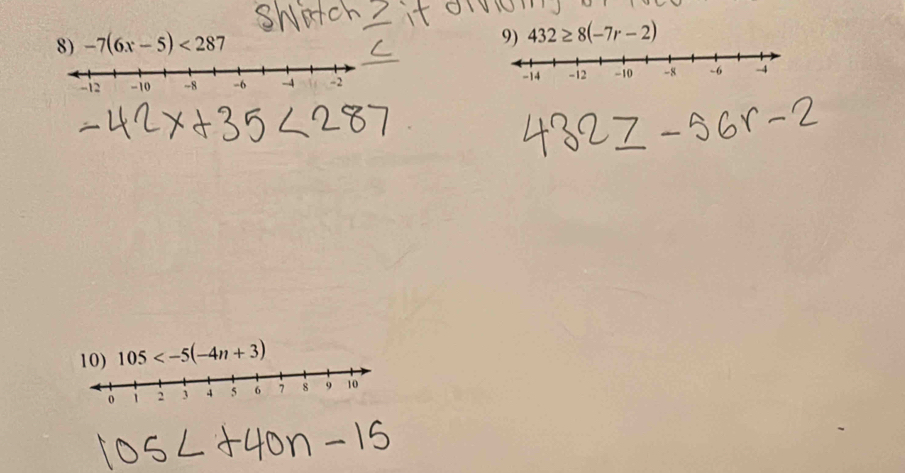 Switch ≥ if
≤
8) -7(6x - 5) < 287
-12 -10 -8 -6 -4 -2
-42x+35<287
9) 432 ≥ 8(-7r - 2)
-14 -12 -10 -8 -6 -4
432≥-56r-2
10) 105 < -5(-4n + 3)
0 1 2 3 4 5 6 7 8 9 10
105<+40n-15